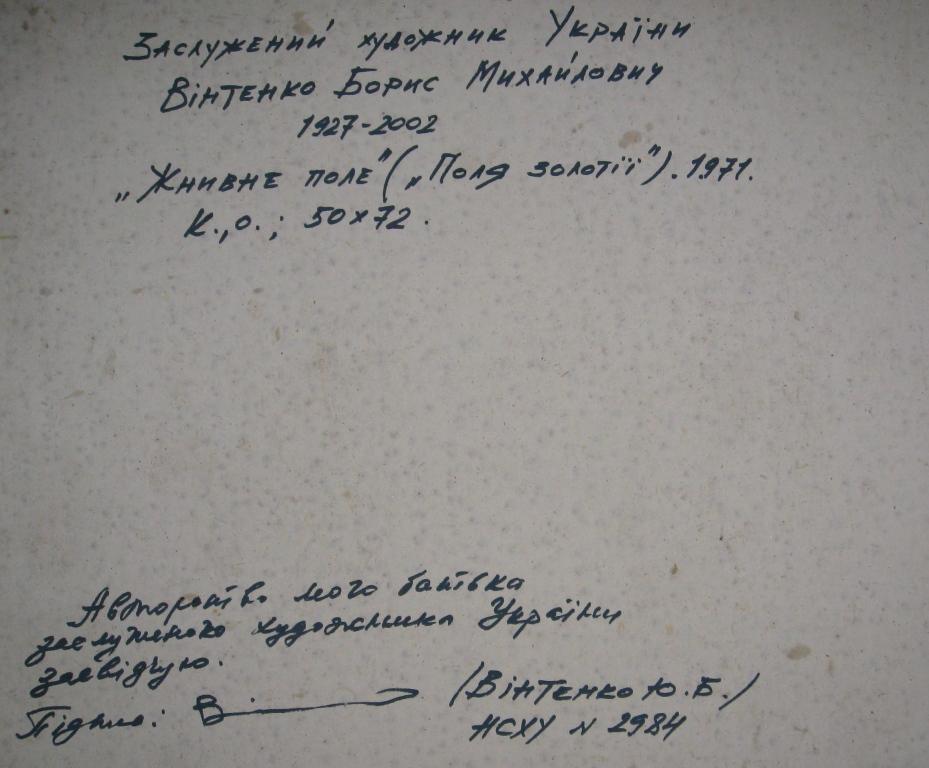 Заслужений художник Украïни
Вінтенко Борис Михайлович
1927-2002
„Жнивне поле" („Поля золотії"). 1971.
К., о.; 50х72.
Авторство мого батька
заслуженого художника Украïни
засвідчую.
Підпис:
(Вінтенко Ю. Б.)
НСХУ N 2984